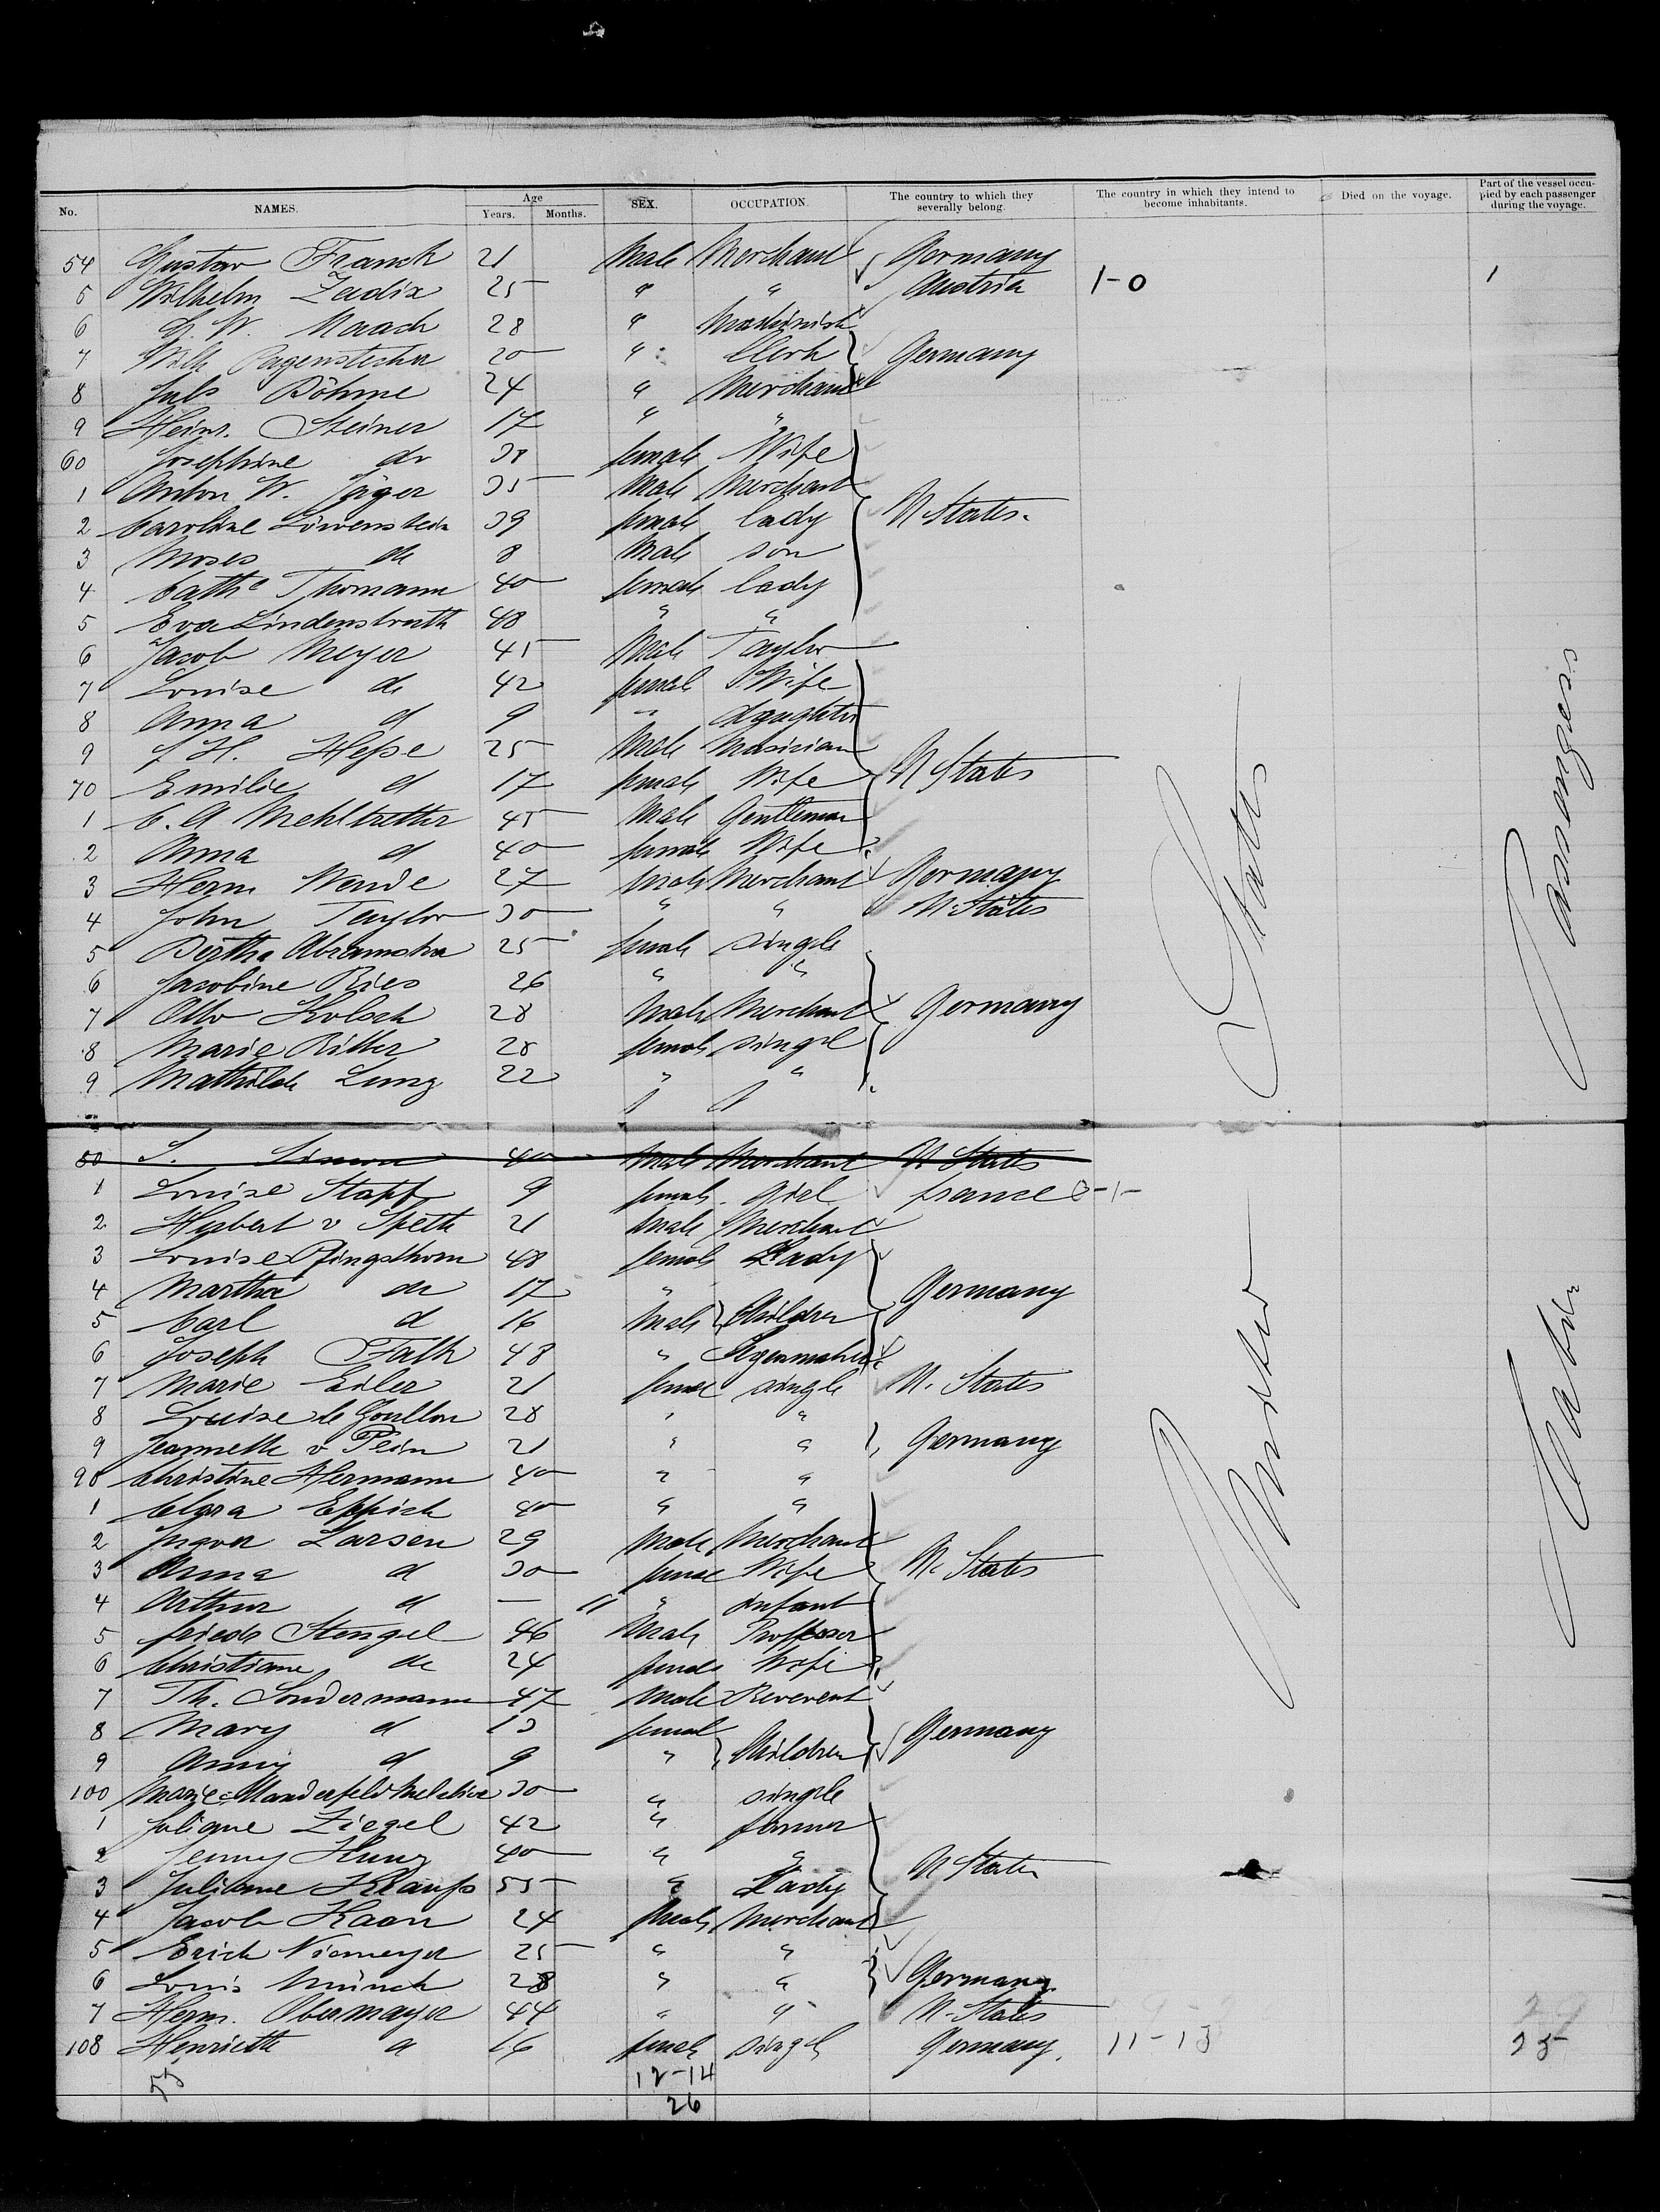 No. NAMES. Age Years. Months. SEX. OCCUPATION. The country to which they severally belong. The country in which they intend to become inhabitants. Died on the voyage. Part of the vessel occupied by each passenger during the voyage.
54 Gustav Franck 21 Male Merchant Germany
5 Wilhelm Zadix 25 " " Austria 1-0 1
6 G. W. Maack 28 " Machinist
7 Wilh Pagenstecher 20 " Clerk Germany
8 Juls Böhme 24 " Merchant
9 Heinr. Steiner 17 " "
60 Josephine do 38 female Wife
1 Anton W. Jäger 35 Male Merchant
2 Caroline Löwenstein 39 female lady U States
3 Moses do 8 Male son
4 Cathe Thomann 40 female lady
5 Eva Lindenstruth 48 " "
6 Jacob Meyer 45 Male Taylor
7 Louise do 42 female Wife
8 Anna d 9 " daughter
9 J. H. Hesse 25 Male Musician
70 Emilie d 17 female Wife U States
1 C. A Mehltretter 45 Male Gentleman
2 Anna d 40 female Wife
3 Herm Wende 27 Male Merchant Germany
4 John Taylor 30 " " U States
5 Bertha 25 female single
6 Jacobine Ries 26 " "
7 Otto Kolsch 28 Male Merchant Germany
8 Marie Ritter 28 female single
9 Mathilde Lung 22 " "
80 S. Simon 40 Male Merchant U States
1 Louise Stapf 9 female Girl France 0-1-
2 Herbert v Speth 21 Male Merchant
3 Louise Pfingsthorn 48 female Lady
4 Martha do 17 " Germany
5 Carl d 16 Male Children
6 Joseph Falk 48 "
7 Marie Eiler 21 female single U. States
8 Louise le Goullon 28 " "
9 Jeannette v Pein 21 " " Germany
90 Christine Hermann 40 " "
1 Clara Eppich 40 " "
2 Ingvor Larsen 29 Male Merchant
3 Anna d 30 female Wife U. States
4 Arthur d — 11 " infant
5 Friedr Stengel 46 Male Proffesor
6 Christiane do 24 female Wife
7 Th. Sondermann 47 Male Reverent
8 Mary d 13 female Germany
9 Anny d 9 " Children
100 Marie 30 " single
1 Juliane Ziegel 42 " farmer
2 Jenny 40 " " U States
3 Juliane Krauss 55 " Lady
4 Jacob Kaan 24 Male Merchant
5 Erich Niemeyer 25 " "
6 Louis Münch 28 " " Germany
7 Herm. Obermayer 44 " " U-States 29
108 Henriette d 16 female single Germany. 11-13 25
55 12-14
26
United States
Cabin Passengers